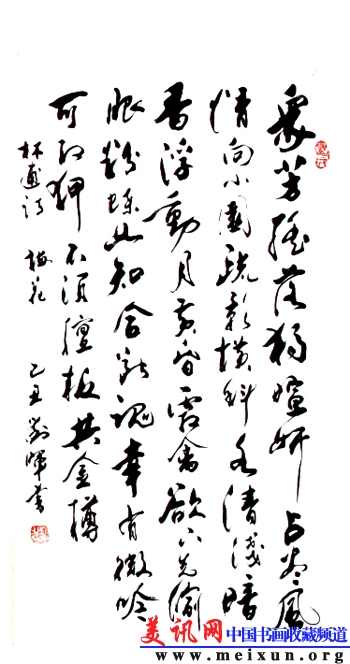 衆芳摇落獨暄妍占尽風
情向小園疏影横斜水清浅暗
香浮動月黄昏霜禽欲下先偷
眼粉蝶如知合断魂幸有微吟
可相狎不须檀板共金樽
林逋诗 梅花 乙丑 劉暉书
美讯网 中国书画收藏频道
www.meixun.org